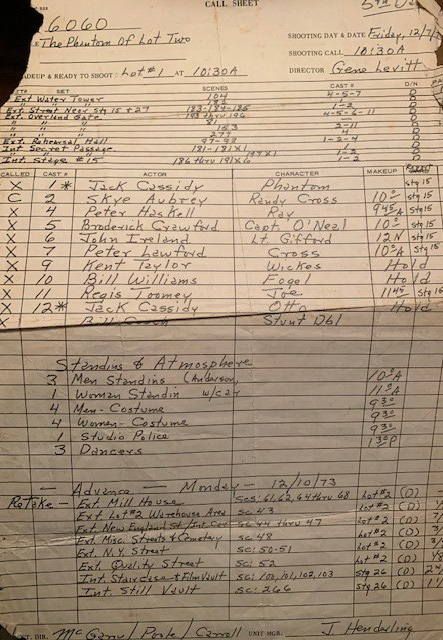 CALL SHEET
6060
5th Da
The Phantom Of Lot Two
SHOOTING DAY & DATE Friday, 12/7/7
SHOOTING CALL 10:30A
MAKEUP & READY TO SHOOT: Lot #1 AT 10:30A DIRECTOR Gene Levitt
SET SCENES CAST # D/N
Ext Water Tower 104 4-5-7 D
" " " 192 D
Ext Street Near Stg 15 & 27 183-184-185 1-2 D
Ext. Overland Gate 193 thru 196 4-5-6-11 D
" " " 21 — D
" " " 153 2-11 D
" " " 279 4 D
Ext. Rehearsal Hall 97-98 1-2-4 D
Int Secret Passage 181-181X1 D
Int. Stage #15 186 thru 191X6 1-2 D
CALLED CAST # ACTOR CHARACTER MAKEUP
X 1* Jack Cassidy Phantom Stg 15
C 2 Skye Aubrey Randy Cross 10:00 Stg 15
X 4 Peter Haskell Ray 9:45A Stg 15
X 5 Broderick Crawford Capt. O'Neal 10:00 Stg 15
X 6 John Ireland Lt. Gifford 12N Stg 15
X 7 Peter Lawford Cross 10:00A Stg 15
X 9 Kent Taylor Wickes Hold
X 10 Bill Williams Fogel Hold
X 11 Regis Toomey Joe 11:45 Stg 15
X 12* Jack Cassidy Otto Hold
X Bill Couch Stunt Dbl
Standins & Atmosphere
3 Men Standins (Anderson, 10:30A
1 Woman Standin w/c 2+ 11:00A
4 Men-Costume 9:30
4 Women-Costume 9:30
1 Studio Police 9:30
3 Dancers 1:30P
— Advance — Monday — 12/10/73
Retake — Ext. Mill House Scs: 61,62,64 thru 68 Lot #2 (D)
Ext Lot #2 Warehouse Area Sc 43 Lot #2 (D)
Ext New England St/ Sc 44 thru 47 Lot #2 (D)
Ext. Misc. Streets & Cemetery Sc 48 Lot #2 (D)
Ext. N.Y. Street Sc: 50-51 Lot #2 (D)
Ext. Quality Street Sc: 52 Lot #2 (D)
Int. Staircase & Film Vault Sc: 100, 101, 102, 103 Stg 26 (D)
Int. Still Vault Sc: 266 Stg 26 (D)
DIR. McGarry/Poole/Carroll UNIT MGR. J Henderling